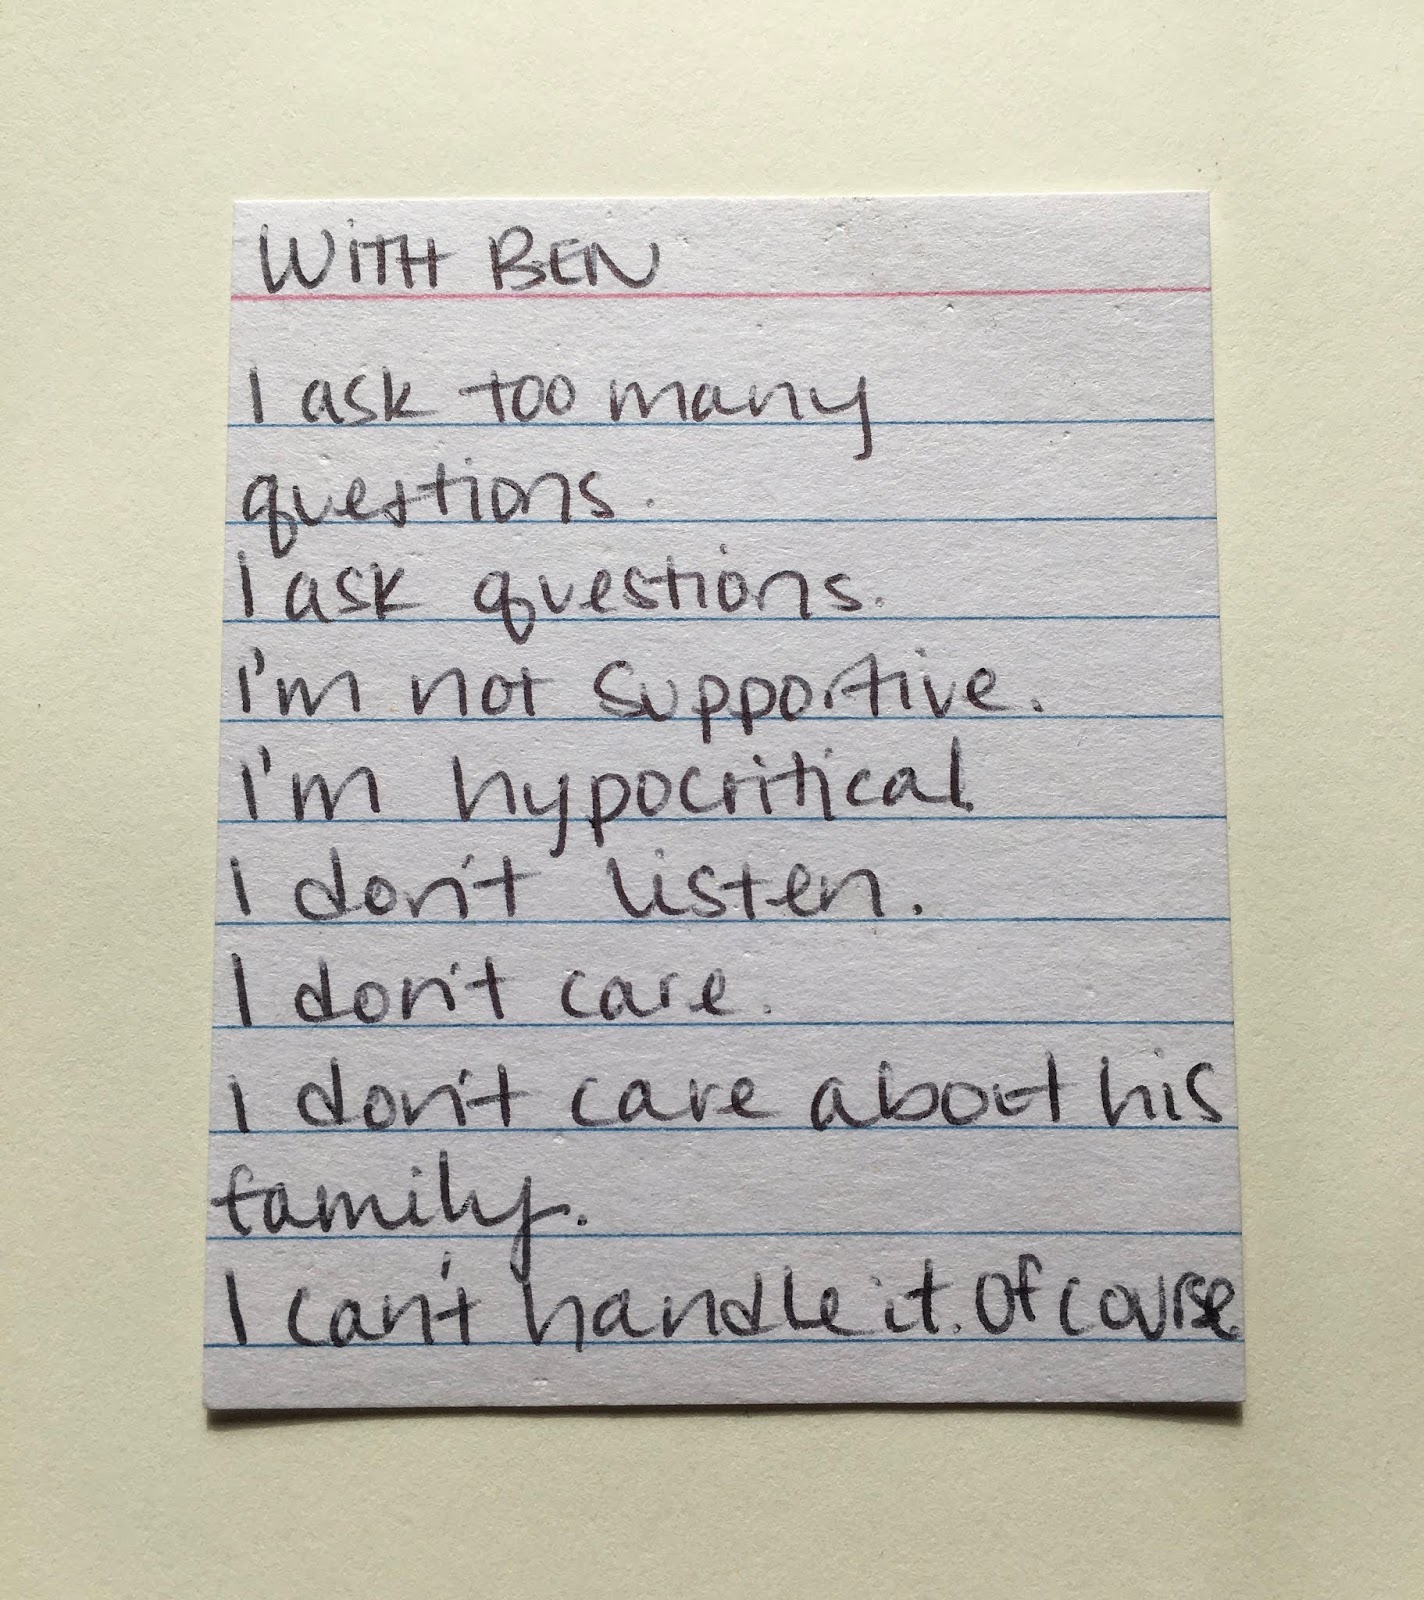 WITH BEN
I ask too many
questions.
I ask questions.
I'm not supportive.
I'm hypocritical.
I don't listen.
I don't care.
I don't care about his
family.
I can't handle it. Of course.